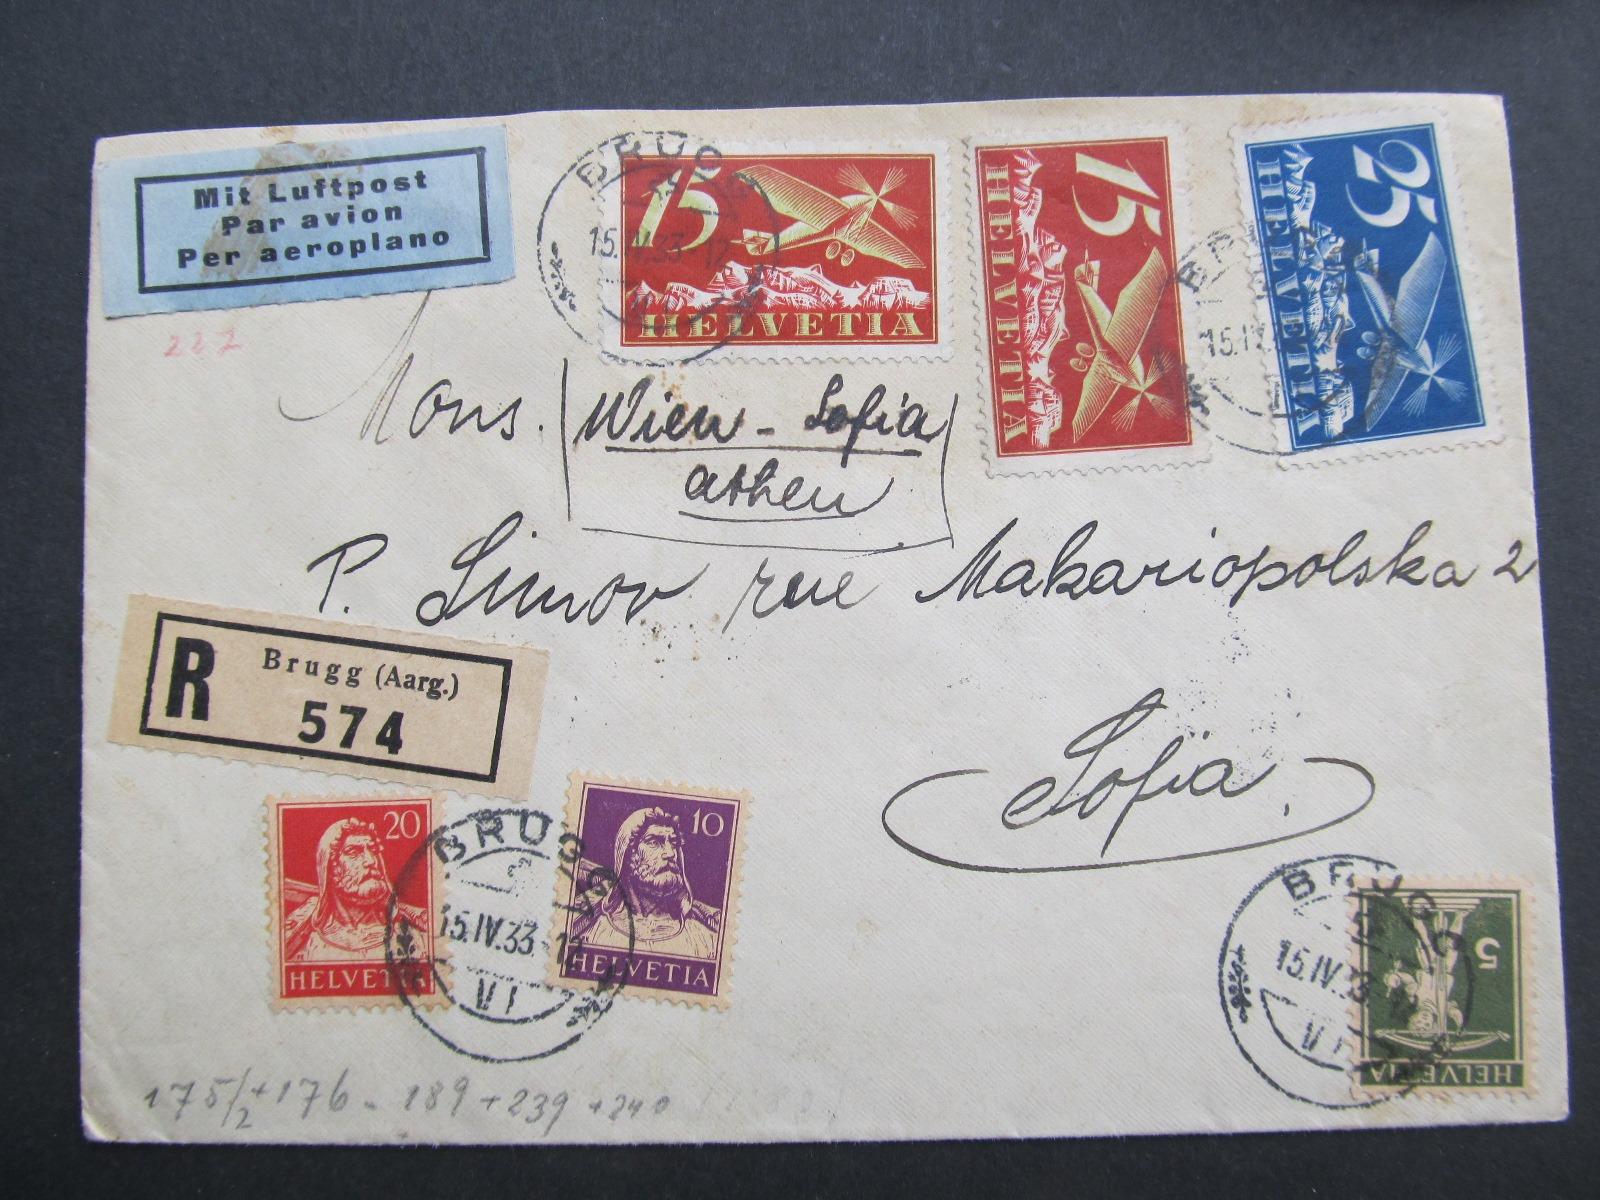 Mit Luftpost
Par avion
Per aeroplano
227
15
HELVETIA
15
HELVETIA
25
HELVETIA
BRUGG
15.IV.33-12
15.IV.
Mons.
Wien - Sofia
Athen
P. Simov rue Makariopolska 2
Sofia.
R
Brugg (Aarg.)
574
20
HELVETIA
10
HELVETIA
BRUGG
15.IV.33-12
VI
5
HELVETIA
BRUGG
15.IV.33-12
VI
175/2+176-189+239+240